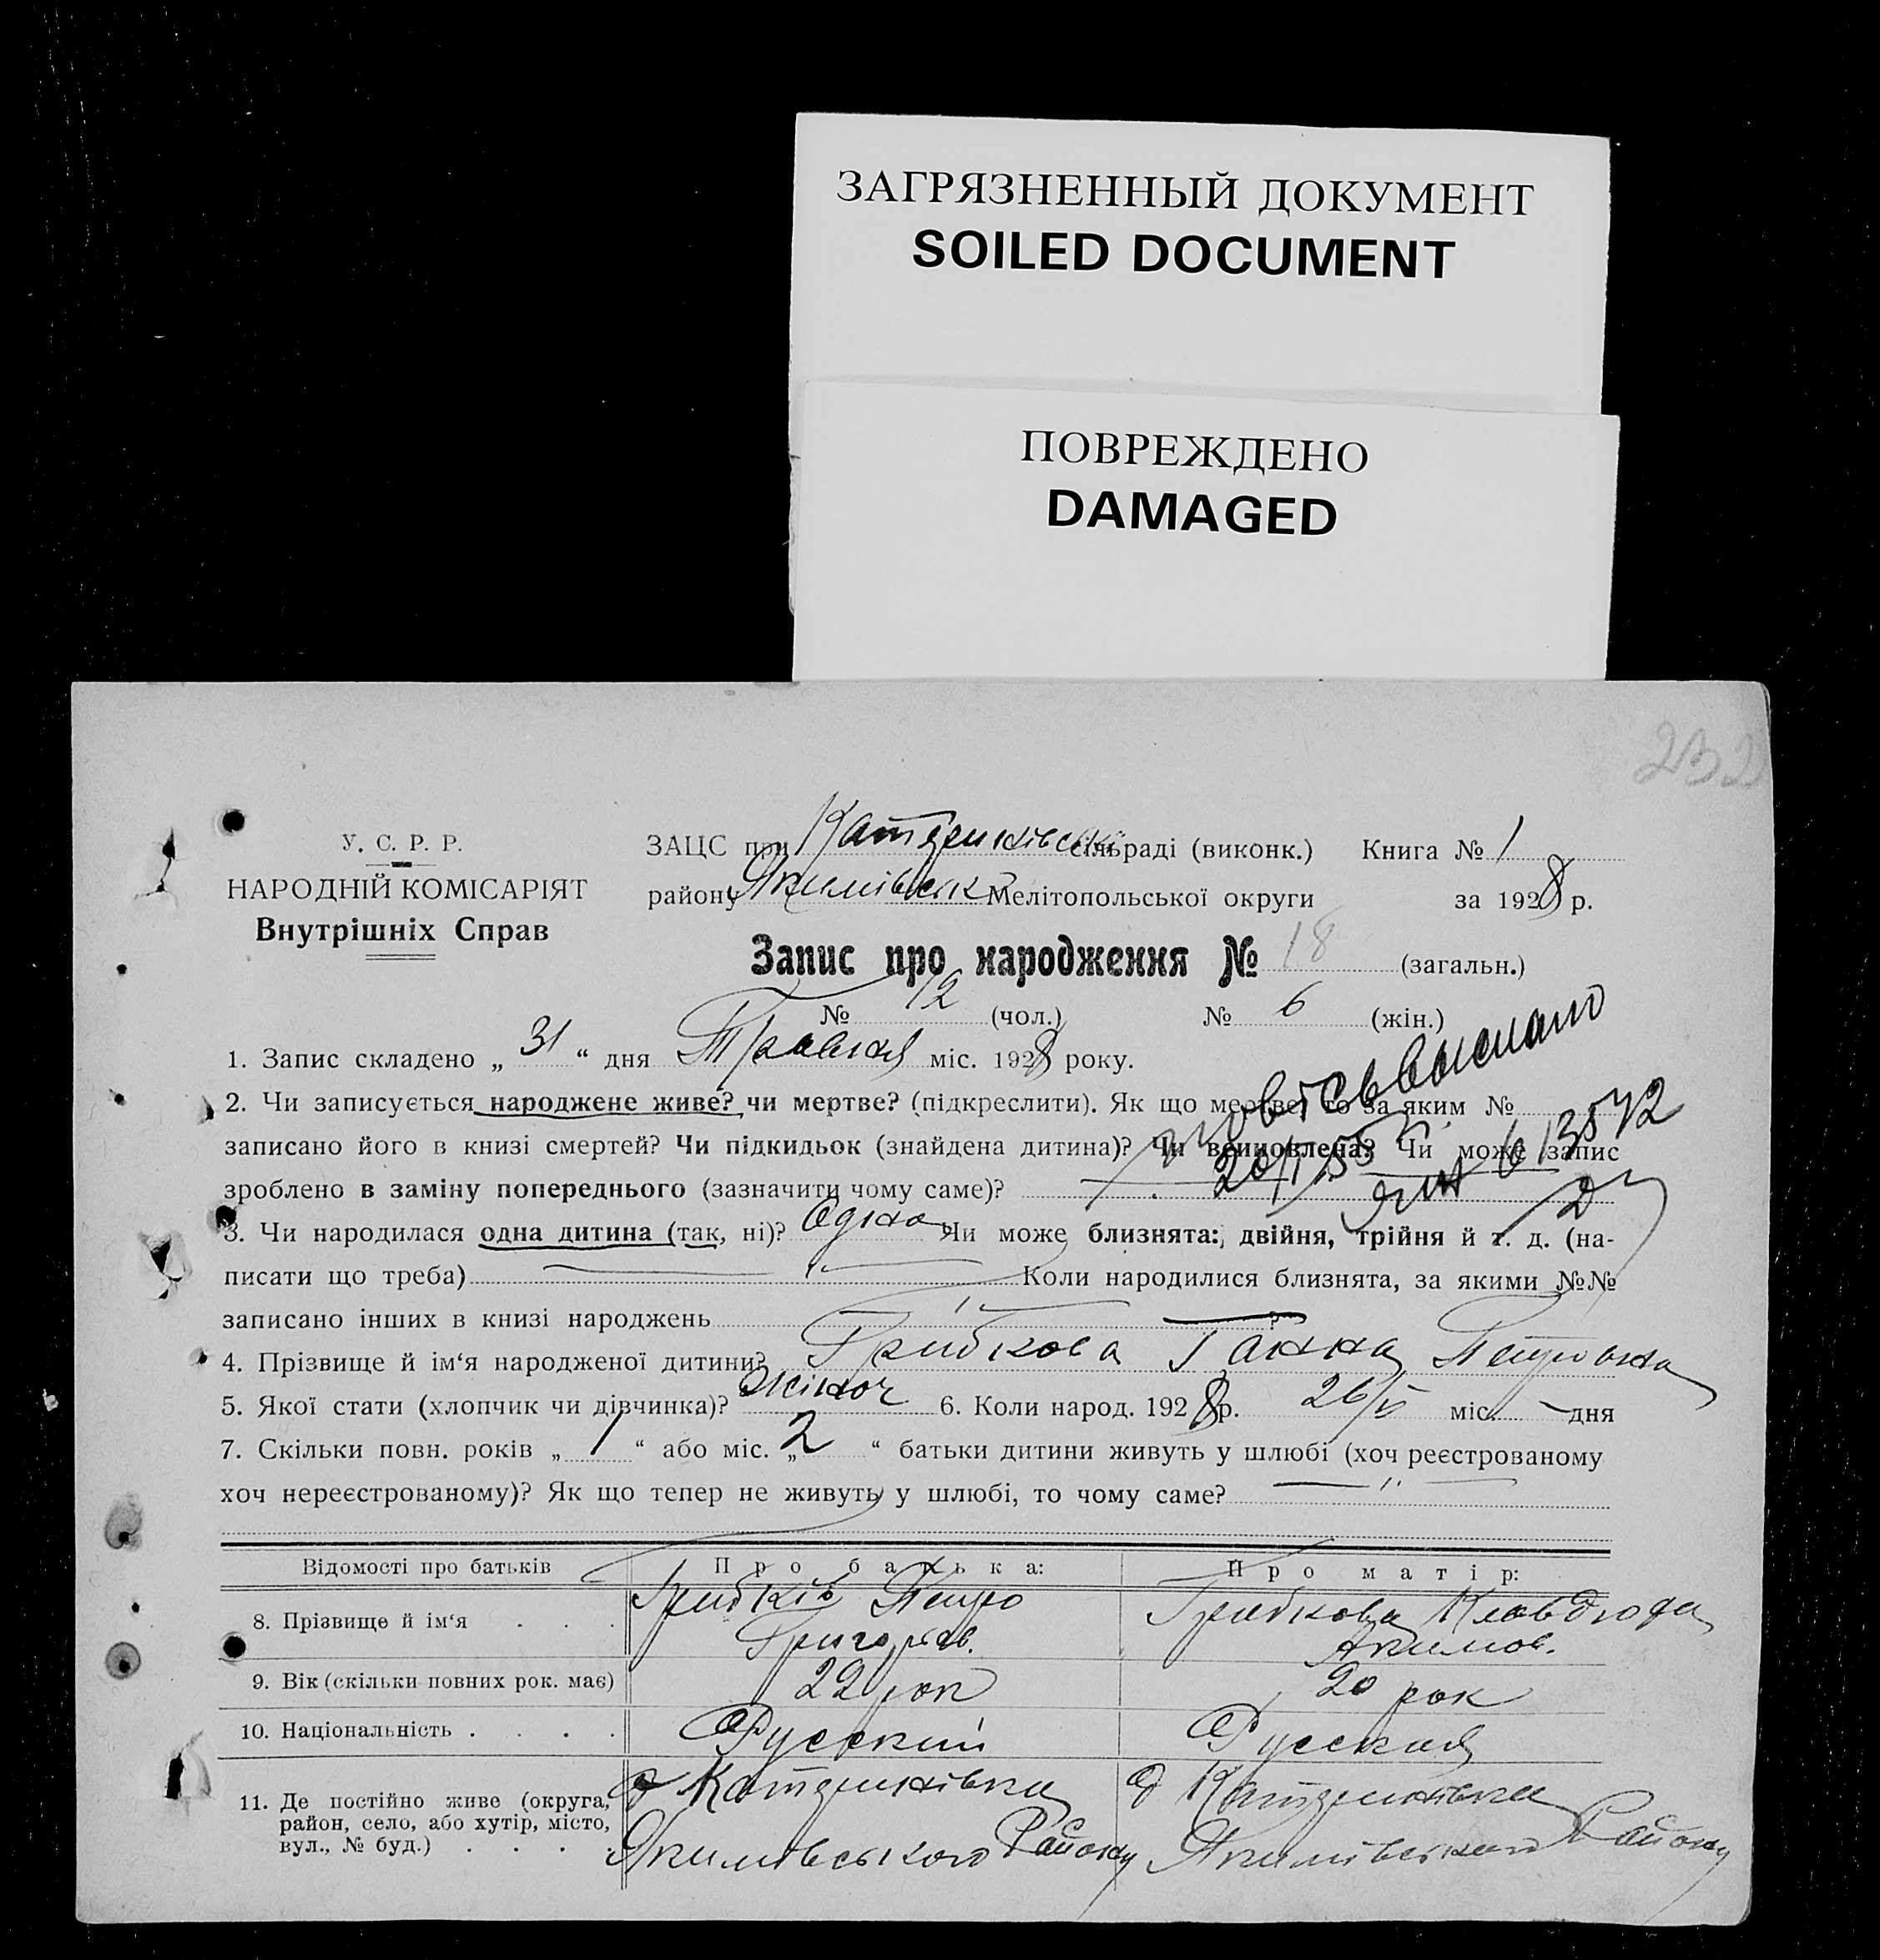 ЗАГРЯЗНЕННЫЙ ДОКУМЕНТ
SOILED DOCUMENT
ПОВРЕЖДЕНО
DAMAGED
232
У. С. Р. Р.
НАРОДНІЙ КОМІСАРІЯТ
Внутрішніх Справ
ЗАЦС при Катеринківськ сільраді (виконк.) Книга № 1
району Якимівськ Мелітопольської округи за 1928 р.
Запис про народження № 18 (загальн.)
№ 12 (чол.) № 6 (жін.)
1. Запис складено „ 31 “ дня Травня міс. 1928 року.
2. Чи записується народжене живе? чи мертве? (підкреслити). Як що мертве, то за яким №
записано його в книзі смертей? Чи підкидьок (знайдена дитина)? Чи вспновлена? Чи може запис
зроблено в заміну попереднього (зазначити чому саме)?
3. Чи народилася одна дитина (так, ні)? Одна Чи може близнята: двійня, трійня й т. д. (на-
писати що треба) Коли народилися близнята, за якими №№
записано інших в книзі народжень ?
4. Прізвище й ім‘я народженої дитини? Грибкова Ганна Петровна
5. Якої стати (хлопчик чи дівчинка)? жіноч 6. Коли народ. 1928 р. 26/V міс. дня
7. Скільки повн. років „ 1 “ або міс. „ 2 “ батьки дитини живуть у шлюбі (хоч реєстрованому
хоч нереєстрованому)? Як що тепер не живуть у шлюбі, то чому саме?
Відомості про батьків Про батька: Про матір:
8. Прізвище й ім‘я Грибків Петро Григоров. Грибкова Клавдюда Акимов.
9. Вік (скільки повних рок. має) 22 рок 20 рок
10. Національність Русский Русская
11. Де постійно живе (округа, район, село, або хутір, місто, вул., № буд.) Катеринівка Якимівського Району Катеринівка Якимівського Району